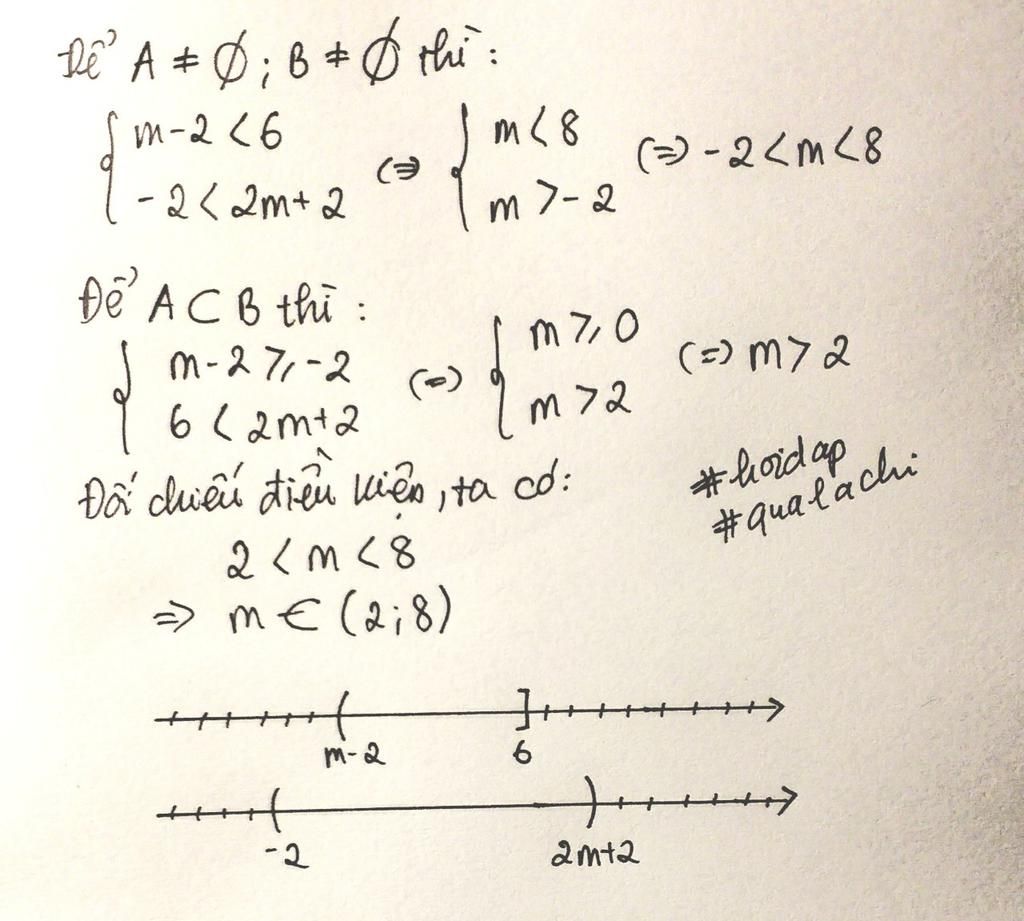 Để A ≠ Ø; B ≠ Ø thì:
{ m-2 < 6 (=) { m < 8 (=) -2 < m < 8
{ -2 < 2m+2 { m > -2
Để A ⊂ B thì:
{ m-2 ⩾ -2 (=) { m ⩾ 0 (=) m > 2
{ 6 < 2m+2 { m > 2
Đối chiếu điều kiện, ta có:
#hoidap
#qualachi
2 < m < 8
=> m ∈ (2;8)
( ]
m-2 6
( )
-2 2m+2